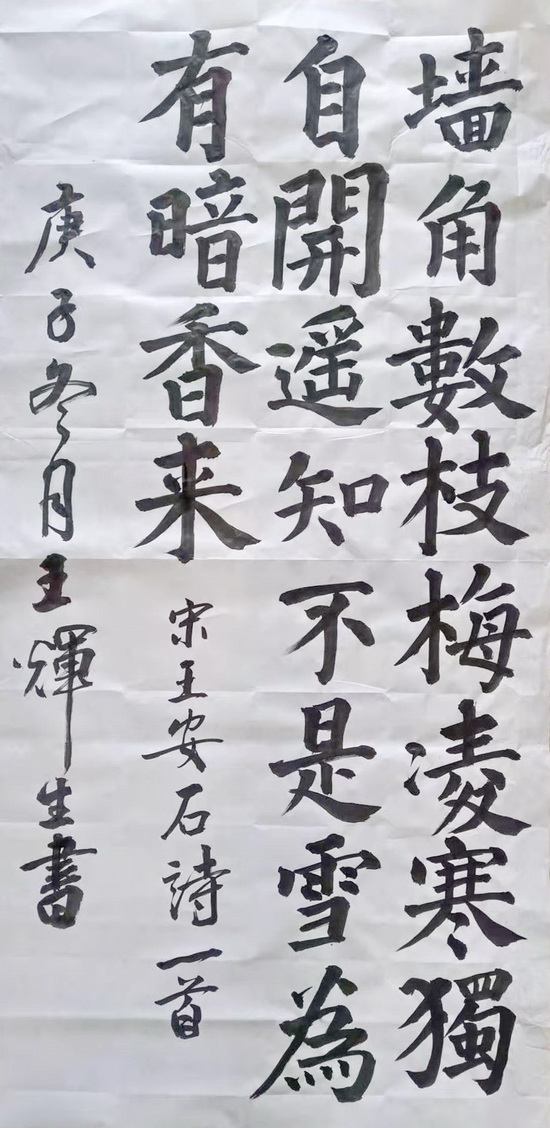 墙角數枝梅凌寒獨
自開遥知不是雪為
有暗香来
宋王安石詩一首
庚子冬月王輝生書